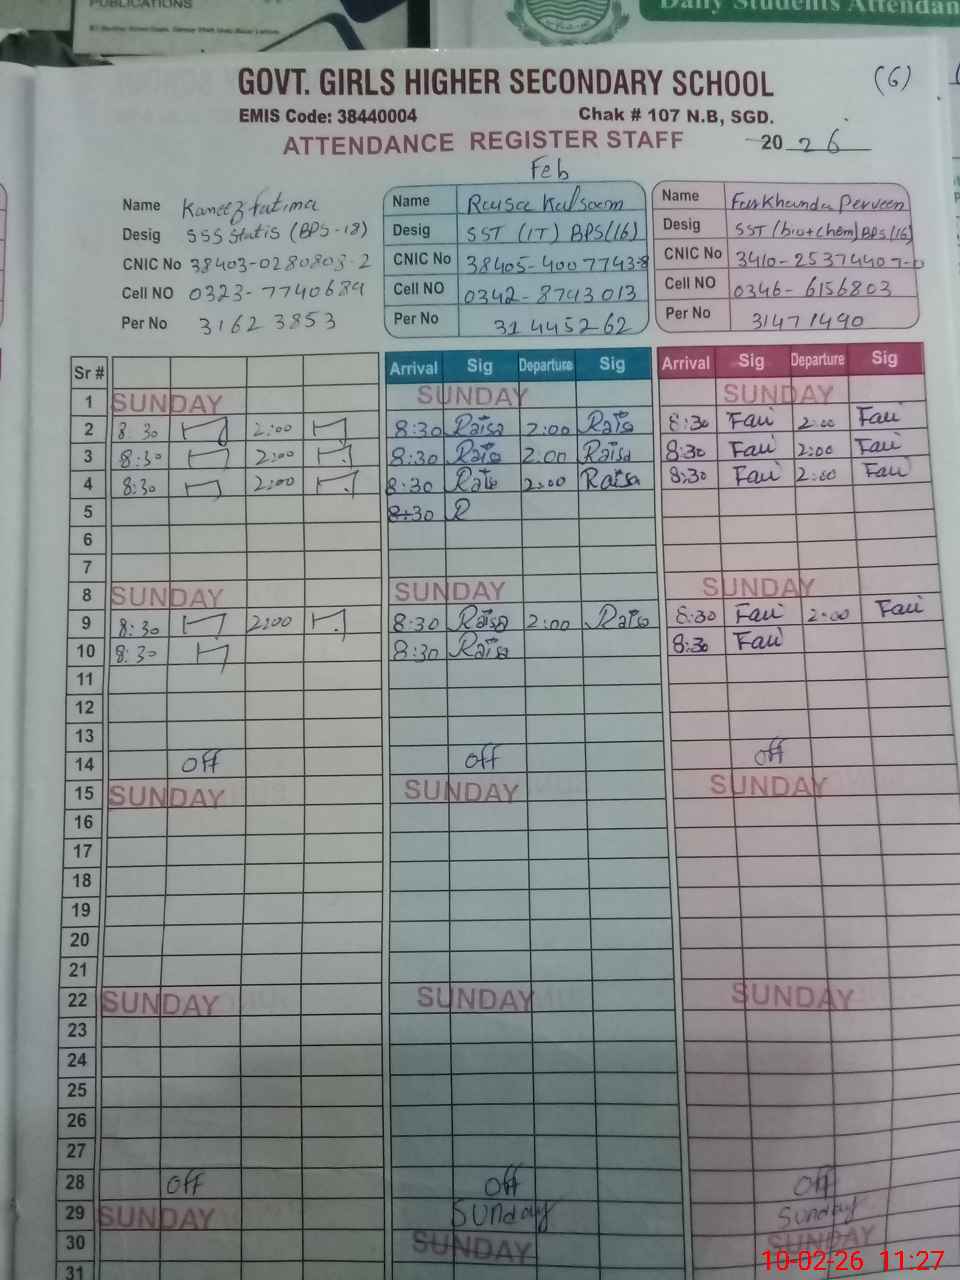 PUBLICATIONS
Daily Students Attendan
GOVT. GIRLS HIGHER SECONDARY SCHOOL
(G)
EMIS Code: 38440004 Chak # 107 N.B, SGD.
ATTENDANCE REGISTER STAFF 20 26
Feb
Name Kaneez fatima
Desig SSS Statis (BPS-18)
CNIC No 38403-0280803-2
Cell NO 0323-7740684
Per No 31623853
Name Raisa Kalsoom
Desig SST (IT) BPS(16)
CNIC No 38405-4007743-8
Cell NO 0342-8743013
Per No 31445262
Name Farkhanda Perveen
Desig SST (bio+chem) BPS(16)
CNIC No 3410-25374407-0
Cell NO 0346-6156803
Per No 31471490
Sr # Arrival Sig Departure Sig Arrival Sig Departure Sig
1 SUNDAY SUNDAY SUNDAY
2 8:30 2:00 8:30 Raisa 2:00 Raisa 8:30 Fari 2:00 Fari
3 8:30 2:00 8:30 Raisa 2:00 Raisa 8:30 Fari 2:00 Fari
4 8:30 2:00 8:30 Raisa 2:00 Raisa 8:30 Fari 2:00 Fari
5 8:30 R
6
7
8 SUNDAY SUNDAY SUNDAY
9 8:30 2:00 8:30 Raisa 2:00 Raisa 8:30 Fari 2:00 Fari
10 8:30 8:30 Raisa 8:30 Fari
11
12
13
14 off off off
15 SUNDAY SUNDAY SUNDAY
16
17
18
19
20
21
22 SUNDAY SUNDAY SUNDAY
23
24
25
26
27
28 off off off
29 SUNDAY Sunday Sunday
30 SUNDAY SUNDAY
31
10-02-26 11:27